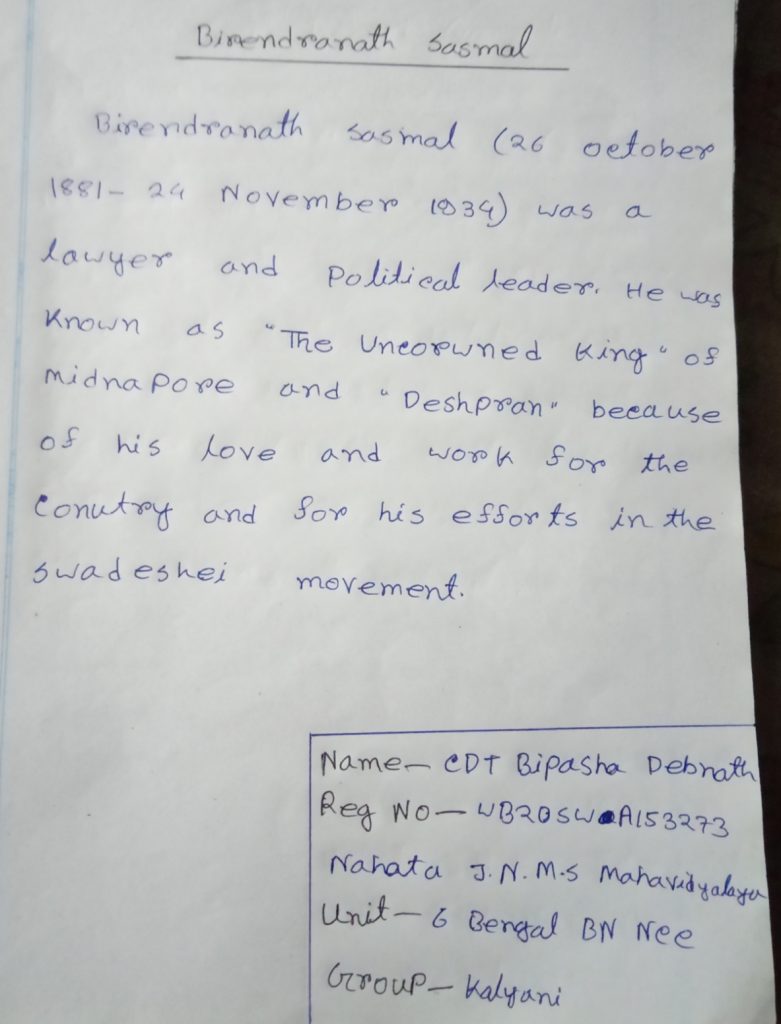 Birendranath Sasmal
Birendranath Sasmal (26 October
1881- 24 November 1934) was a
lawyer and Political leader. He was
Known as "The Uncorwned King" of
Midnapore and "Deshpran" because
of his love and work for the
Conutry and for his efforts in the
swadeshei movement.
Name- CDT Bipasha Debnath
Reg No- WB20SWA153273
Nahata J.N.M.S Mahavidyalaya
Unit- 6 Bengal BN Ncc
Group- Kalyani